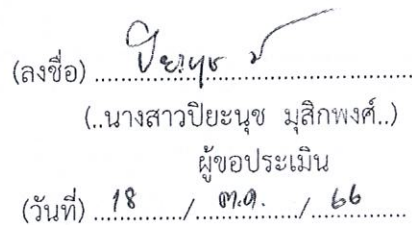 (ลงชื่อ) ปิยะนุช
(..นางสาวปิยะนุช มุสิกพงศ์..)
ผู้ขอประเมิน
(วันที่) 18 / ต.ค. / 66